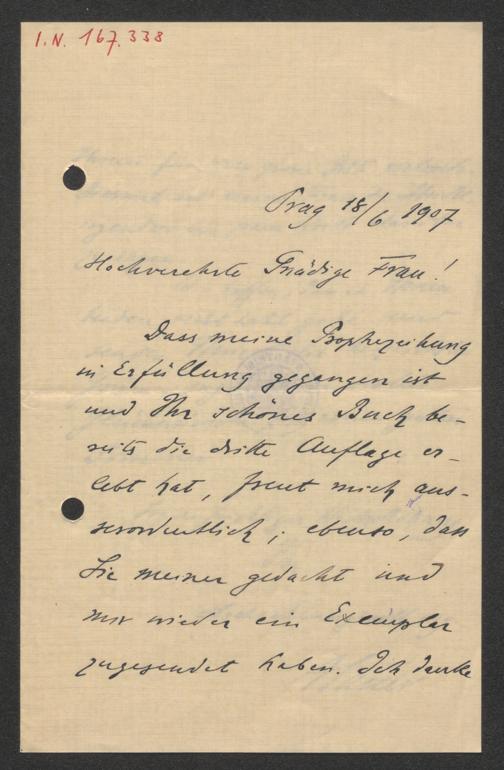 I.N. 167.338
Prag 18/6 1907
Hochverehrte Gnädige Frau!
Dass meine Prophezeihung
in Erfüllung gegangen ist
und Ihr schönes Buch be-
reits die dritte Auflage er-
lebt hat, freut mich aus-
serordentlich; ebenso, dass
Sie meiner gedacht und
mir wieder ein Exemplar
zugesendet haben. Ich danke